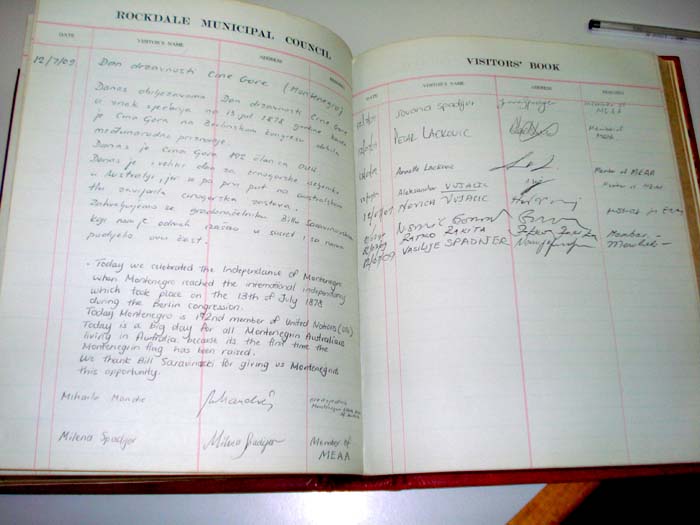 ROCKDALE MUNICIPAL COUNCIL
DATE VISITOR'S NAME ADDRESS
12/7/09 Dan državnosti Crne Gore (Montenegro)
Danas obilježavamo Dan državnosti Crne Gore
a znak sjećanja na 13 jul 1878 godine kada
je Crna Gora na Berlinskom kongresu dobila
međunarodno priznanje.
Danas je Crna Gora 192 članica OUN
Danas je veliki dan za crnogorske iseljenike
u Australiji, jer se po prvi put na australskom
tlu zavijorila crnogorska zastava.
Zahvaljujemo se gradonačelniku Billu Saravinovskom
koji nam je odmah izašao u susret i sa nama
podijelio ovu čast.
. Today we celebrated the Independance of Montenegro
when Montenegro reached the international independancy
which took place on the 13th of July 1878
during the Berlin congression.
Today Montenegro is 192nd member of United Nations (UN)
Today is a big day for all Montenegrin Australians
living in Australia because its the first time the
Montenegrin flag has been raised.
We thank Bill Saravinoski for giving us Montenegrins
this opportunity.
Mihailo Mandic
Milena Spadijer Milena Spadijer Member of
MEAA
VISITORS' BOOK
DATE VISITOR'S NAME ADDRESS REMARKS
Jovana Spadijer Member of
MEAA
PEDJA LACKOVIC Member of
MEAA
Annette Lackovic Member of MEAA
Aleksandar VUJACIC Member of MEAA
NEVICA VUJACIC
RATKO RAKITA Member -
12/07/09 VASILIJE SPADIJER Member -